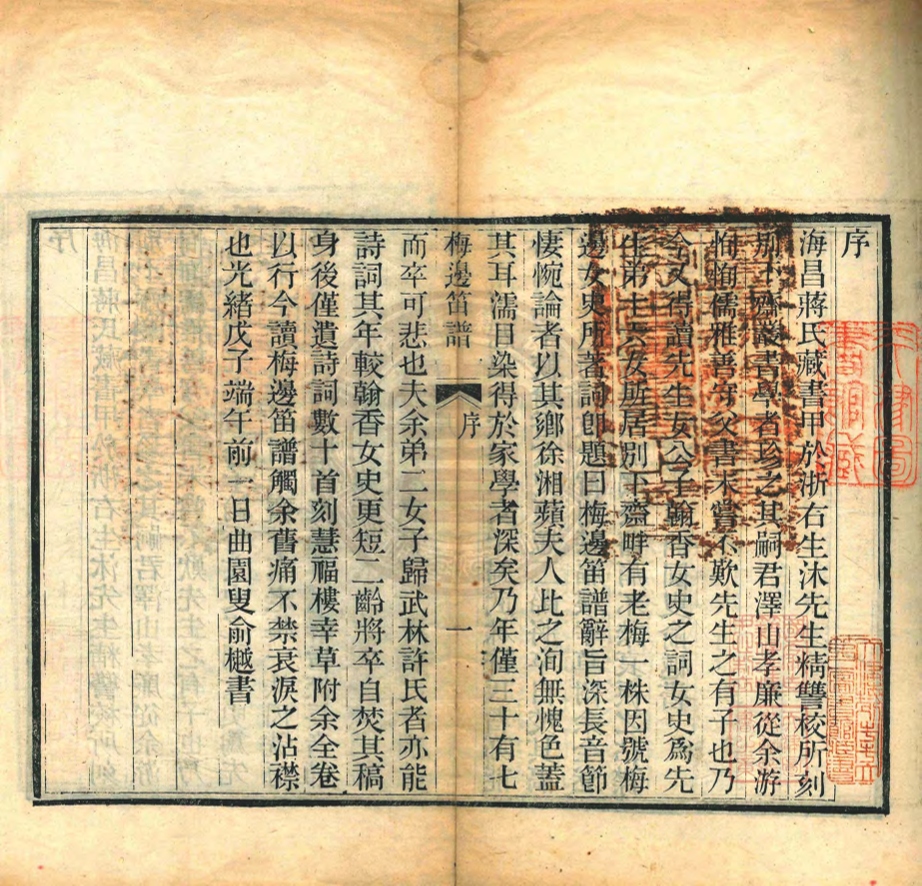 序
海昌蔣氏藏書甲於浙右生沐先生精讐校所刻
別下齋叢書學者珍之其嗣君澤山孝廉從余游
恂恂儒雅善守父書未嘗不歎先生之有子也乃
今又得讀先生女公子翰香女史之詞女史為先
生弟十六女所居別下齋畔有老梅一株因號梅
邊女史所著詞卽題曰梅邊笛譜辭旨深長音節
悽惋論者以其鄉徐湘蘋夫人比之洵無愧色蓋
其耳濡目染得於家學者深矣乃年僅三十有七
梅邊笛譜 序 一
而卒可悲也夫余弟二女子歸武林許氏者亦能
詩詞其年較翰香女史更短二齡將卒自焚其稿
身後僅遺詩詞數十首刻慧福樓幸草附余全卷
以行今讀梅邊笛譜觸余舊痛不禁衰淚之沾襟
也光緒戊子端午前一日曲園叟俞樾書